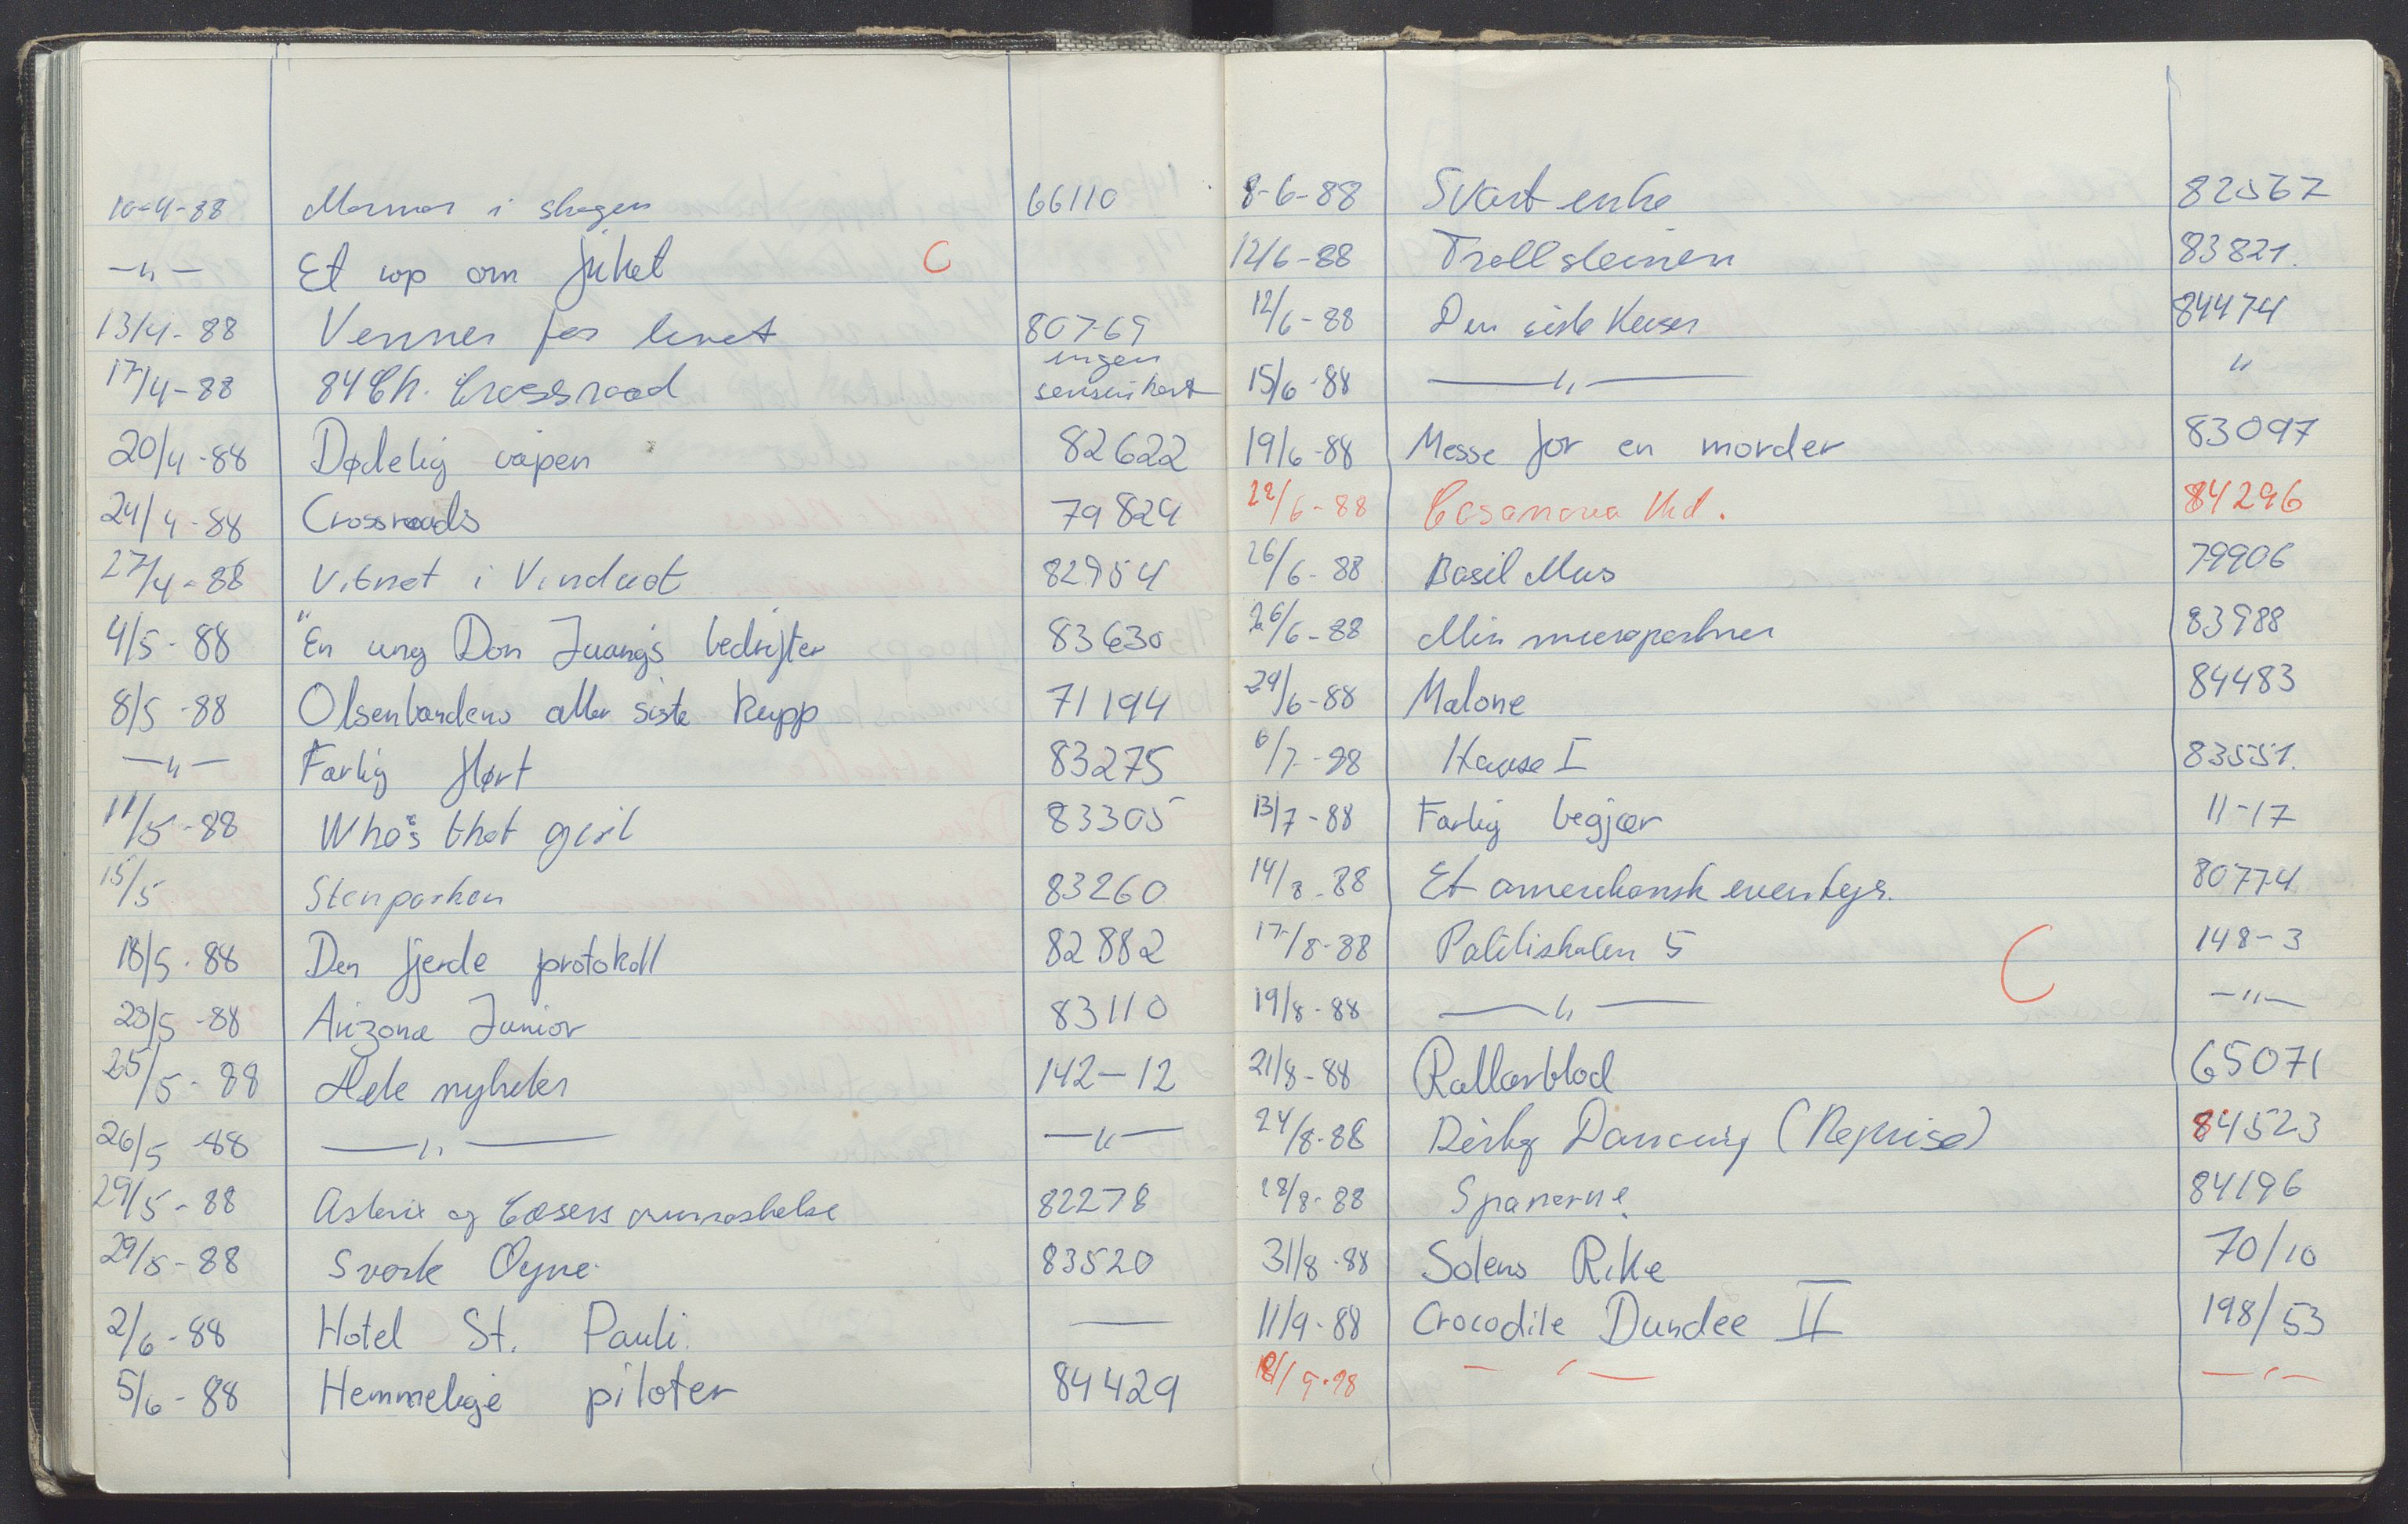 10-4-88 Mormor i skogen 66110
—„— Et rop om frihet C
13/4-88 Venner for livet 80769
17/4-88 84 Ch. Crossroad ingen sensurkort
20/4-88 Dødelig våpen 82622
24/4-88 Crossroads 79824
27/4-88 Vitnet i Vinduet 82954
4/5-88 "En ung Don Juang's bedrifter 83630
8/5-88 Olsenbandens aller siste kupp 71194
—„— Farlig flørt 83275
11/5-88 Who's that girl 83305
15/5 Stenparken 83260
18/5-88 Den fjerde protokoll 82882
23/5-88 Arizona Junior 83110
25/5-88 Hete nyheter 142-12
26/5-88 —„— —„—
29/5-88 Asterix og Cæsers overraskelse 82278
29/5-88 Svarte Øyne 83520
2/6-88 Hotel St. Pauli. —
5/6-88 Hemmelige piloter 84429
8-6-88 Svart enke 82567
12/6-88 Trollsteinen 83821.
12/6-88 Den siste Keiser 84474
15/6-88 —„— „
19/6-88 Messe for en morder 83097
22/6-88 Casanova 84296
26/6-88 Basil Mus 79906
26/6-88 Min 83988
29/6-88 Malone 84483
6/7-88 House I 83551.
13/7-88 Farlig begjær 11-17
14/8-88 Et amerikansk eventyr. 80774
17/8-88 Politiskolen 5 C 148-3
19/8-88 —„— —"—
21/8-88 Rallarblod 65071
24/8-88 Dirty Dancing (Reprise) 84523
28/8-88 Spanerne. 84196
31/8-88 Solens Rike 70/10
11/9-88 Crocodile Dundee II 198/53
— ‘ — — ‘ —